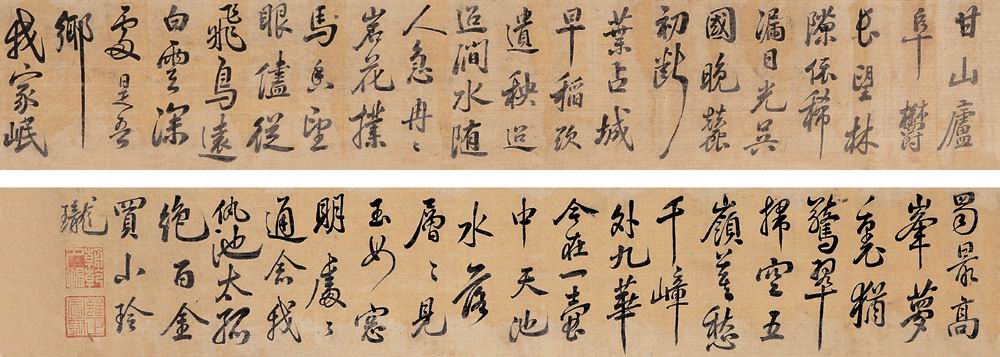 甘山廬
阜欝
長望林
隙依稀
漏日光吳
國晚蠶
初斷
葉占城
早稻欲
遺秧迢
迢澗水随
人急冉〻
岩花撲
馬香望
眼儘從
飛鳥遠
白雲深
處是吾
鄉
我家岷
蜀最高
峯夢
裏猶
驚翠
掃空五
嶺莫愁
千嶂
外九華
今在一壺
中天池
水落
層〻見
玉女窓
明處〻
通念我
仇池太孤
絕百金
買小玲
瓏